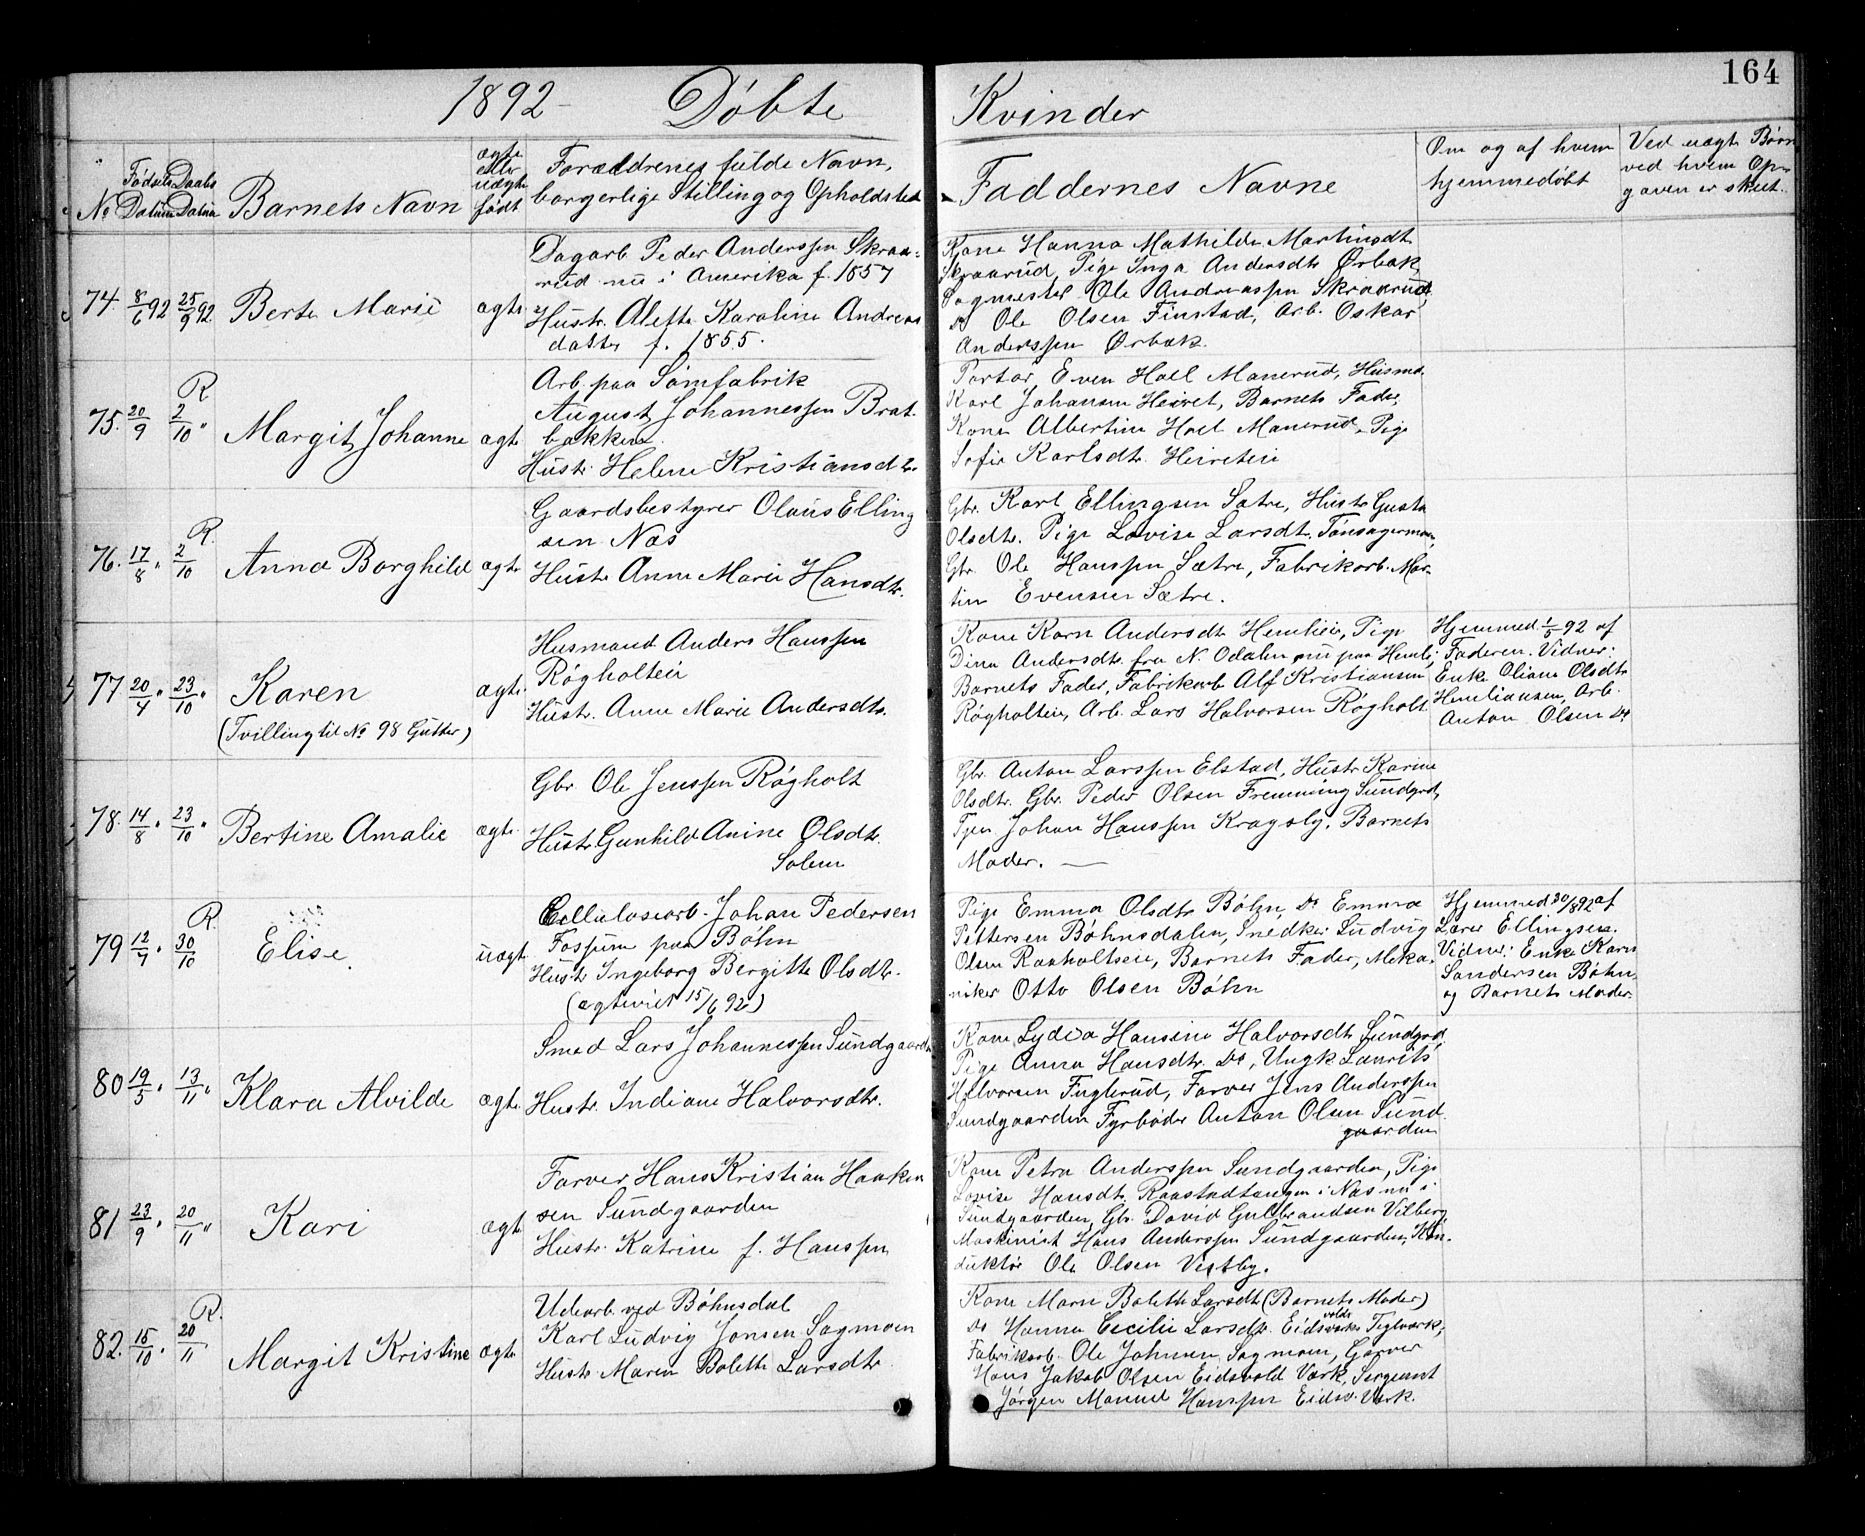 164
1892 Døbte Kvinder
No
Fødsels Datum
Daabs Datum
Barnets Navn
ægte eller uægte født
Forældrenes fulde Navn,
borgerlige Stilling og Opholdsted
Faddernes Navne
Om og af hvem
hjemmedøbt
Ved uægte Børn
ved hvem Op-
gaven er sket.
74. 8/6 92 25/9 92 Berte Marie ægte
Dagarb. Peder Anderssen Skraa-
rud nu i Amerika f. 1857
Hustr. Alette Karoline Andreas
datter f. 1855.
Kone Hanna Mathilde Martinsdtr
Skraarud, Pige Inga Andersdtr Ørbæk,
Sagmester Ole Andreassen Skraarud,
Do Ole Olsen Finstad, Arb. Oskar
Anderssen Ørbæk.
75. 20/9 R 2/10 " Margit Johanne ægte
Arb. paa Sømfabrik
August Johannessen Brat-
bakken.
Hustr. Helene Kristiansdtr
Portør Even Hoel Manerud, Husmd.
Karl Johansen Heiret, Barnets Fader,
Kone Albertine Hoel Manerud, Pige
Sofie Karlsdtr. Heireteie
76. 17/8 " R. 2/10 Anna Borghild ægte
Gaardsbestyrer Olaus Elling
sen Næs
Hustr Anne Marie Hansdtr.
Gbr. Karl Ellingsen Sætre, Hustr Gusta
Olsdtr. Pige Lovise Larsdtr.
Gbr. Ole Hanssen Sætre, Fabrikarb. Mar-
tin Evensen Sætre.
77 20/4 " 23/10 " Karen ægte
(Tvilling til No 98 Gutter)
Husmand Anders Hanssen
Røgholteie
Hustr. Anne Marie Andersdtr.
Kone Karn Andersdtr Hemlieie, Pige
Dina Andersdtr. fra N. Odalen nu paa Hemli,
Barnets Fader, Fabrikarb Alf Kristiansen
Røgholteie, Arb. Lars Halvorsen Røgholt
Hjemmed. 1/5 92 af
Faderen. Vidner:
Enke Oliane Olsdtr
Hemliausen, Arb.
Anton Olsen Do
78. 14/8 " 23/10 " Bertine Amalie ægte
Gbr. Ole Jenssen Røgholt
Hustr Gunhild Anine Olsdtr.
Solem
Gbr. Anton Larssen Elstad, Hustr Karine
Olsdtr. Gbr. Peder Olsen Fremming Sundgrd,
Tjen Johan Hanssen Kragsly, Barnets
Moder. —
79 12/7 R. 30/10 Elise. uægte
Cellulosearb. Johan Pedersen
Fossum paa Bøhn
Hustr Ingeborg Bergitte Olsdtr.
(ægteviet 15/6 92)
Pige Emma Olsdtr Bøhn, Do Emma
Pettersen Bøhnsdalen, Snedker Ludvig
Olsen Raaholteie, Barnets Fader, Meka-
niker Otto Olsen Bøhn
Hjemmed 20/8 92 af
Lærer Ellingsen.
Vidner: Enke Karn
Sandersen Bøhn,
og Barnets Moder.
80 19/5 " 13/11 " Klara Alvilde ægte
Smed Lars Johannessen Sundgaarden
Hustr. Indiane Halvorsdtr.
Kone Lydia Hansine Halvorsdtr. Sundgrd,
Pige Anna Hansdtr. Do, Ungk Laurits
Halvorsen Fuglerud, Farver Jens Anderssen
Sundgaarden Fyrbøder Anton Olsen Sund
gaarden
81 23/9 " 20/11 " Kari ægte
Farver Hans Kristian Haaken
sen Sundgaarden
Hustr. Katrine f. Hanssen
Kone Petra Anderssen Sundgaarden, Pige
Lovise Hansdtr. Raastadtangen i Næs nu i
Sundgaarden, Gbr. David Gulbrandsen Vilberg,
Maskinist Hans Anderssen Sundgaarden, Kon-
duktør Ole Olsen Vestby.
82. 15/10 " R. 20/11 Margit Kristine ægte
Udearb. ved Bøhnsdal
Karl Ludvig Jonsen Sagmoen
Hustr Maren Bolette Larsdtr.
Kone Maren Bolette Larsdtr (Barnets Moder)
Do Hanna Cecilie Larsdtr. Eidsvolds Teglværk,
Fabrikarb. Ole Johnsen Sagmoen, Garver
Hans Jakob Olsen Eidsvold Værk, Sergeant
Jørgen Manuel Hanssen Eidsv. Værk.